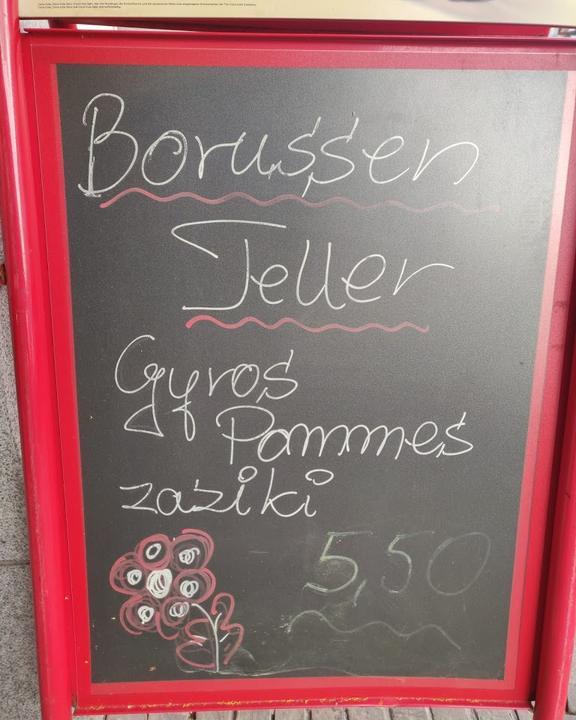 Borussen
Teller
Gyros
Pommes
zaziki
5,50